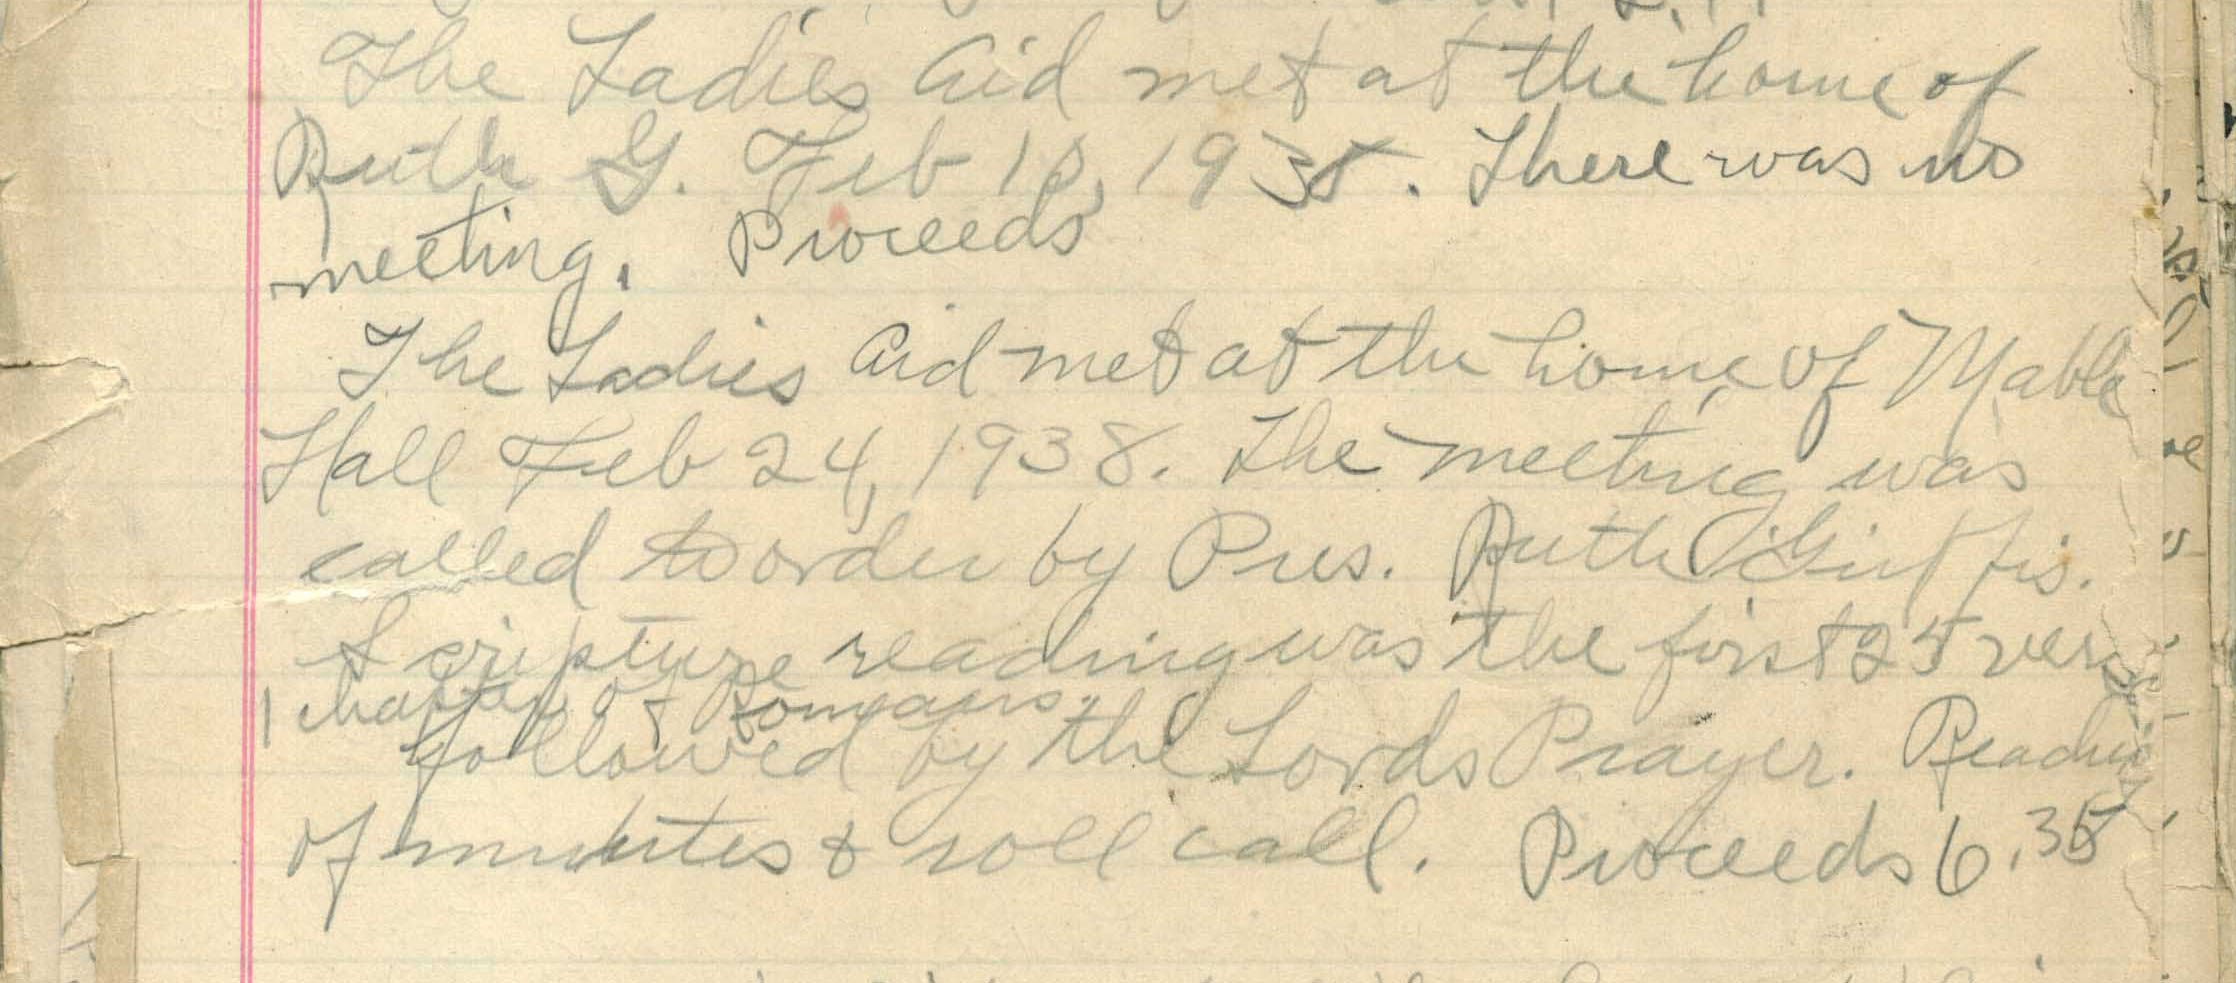 The Ladies Aid met at the home of
Ruth G. Feb 10, 1938. There was no
meeting. Proceeds
The Ladies Aid met at the home of Mable
Hall Feb 24, 1938. The meeting was
called to order by Pres. Ruth
Scripture reading was the first 25
1 of Romans.
followed by the Lords Prayer.
of minutes & roll call. Proceeds 6.35